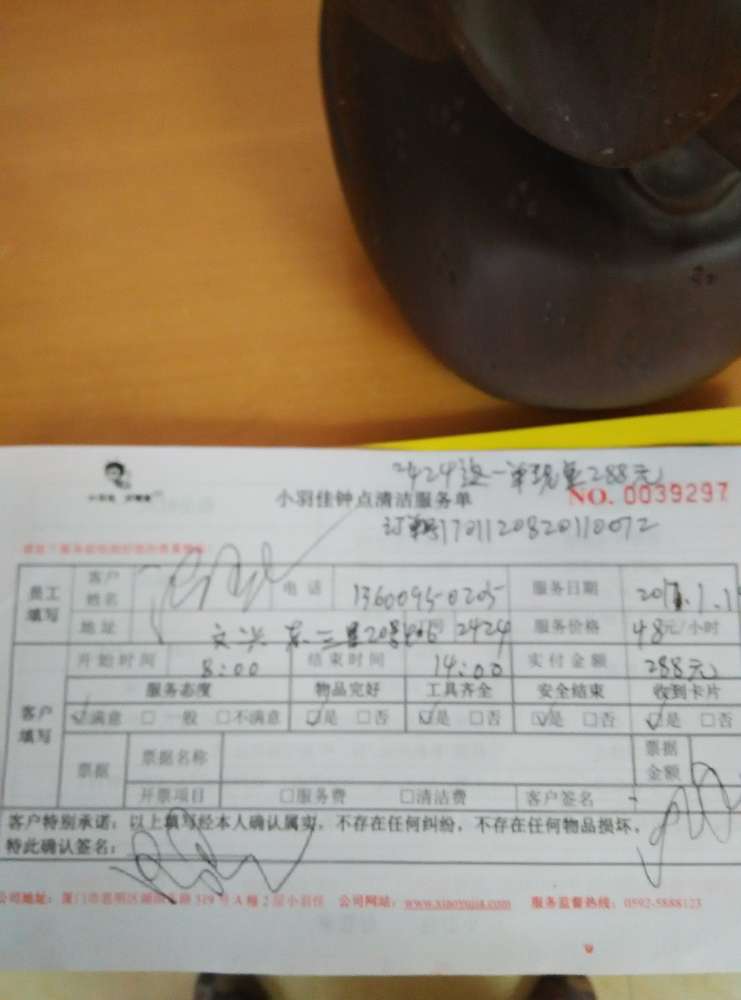 2424这一单现金288元
小羽佳钟点洁清服务单 NO. 0039297
订单号1701120820110072
员工填写 客户姓名 电话 1360095-0205 服务日期 2017.1.1
地址 文兴东三里208 2424 服务价格 48元/小时
客户填写 开始时间 8:00 结束时间 14:00 实付金额 288元
服务态度 物品完好 工具齐全 安全结束 收到卡片
☑满意 □一般 □不满意 ☑是 □否 ☑是 □否 ☑是 □否 ☑是 □否
票据 票据名称 票据金额
开票项目 □服务费 □清洁费 客户签名
客户特别承诺：以上填写经本人确认属实，不存在任何纠纷，不存在任何物品损坏，
特此确认签名：
公司地址：厦门市思明区 319号A幢2层小羽佳 公司网站：www.xiaoyujia.com 服务监督热线：0592-5888123